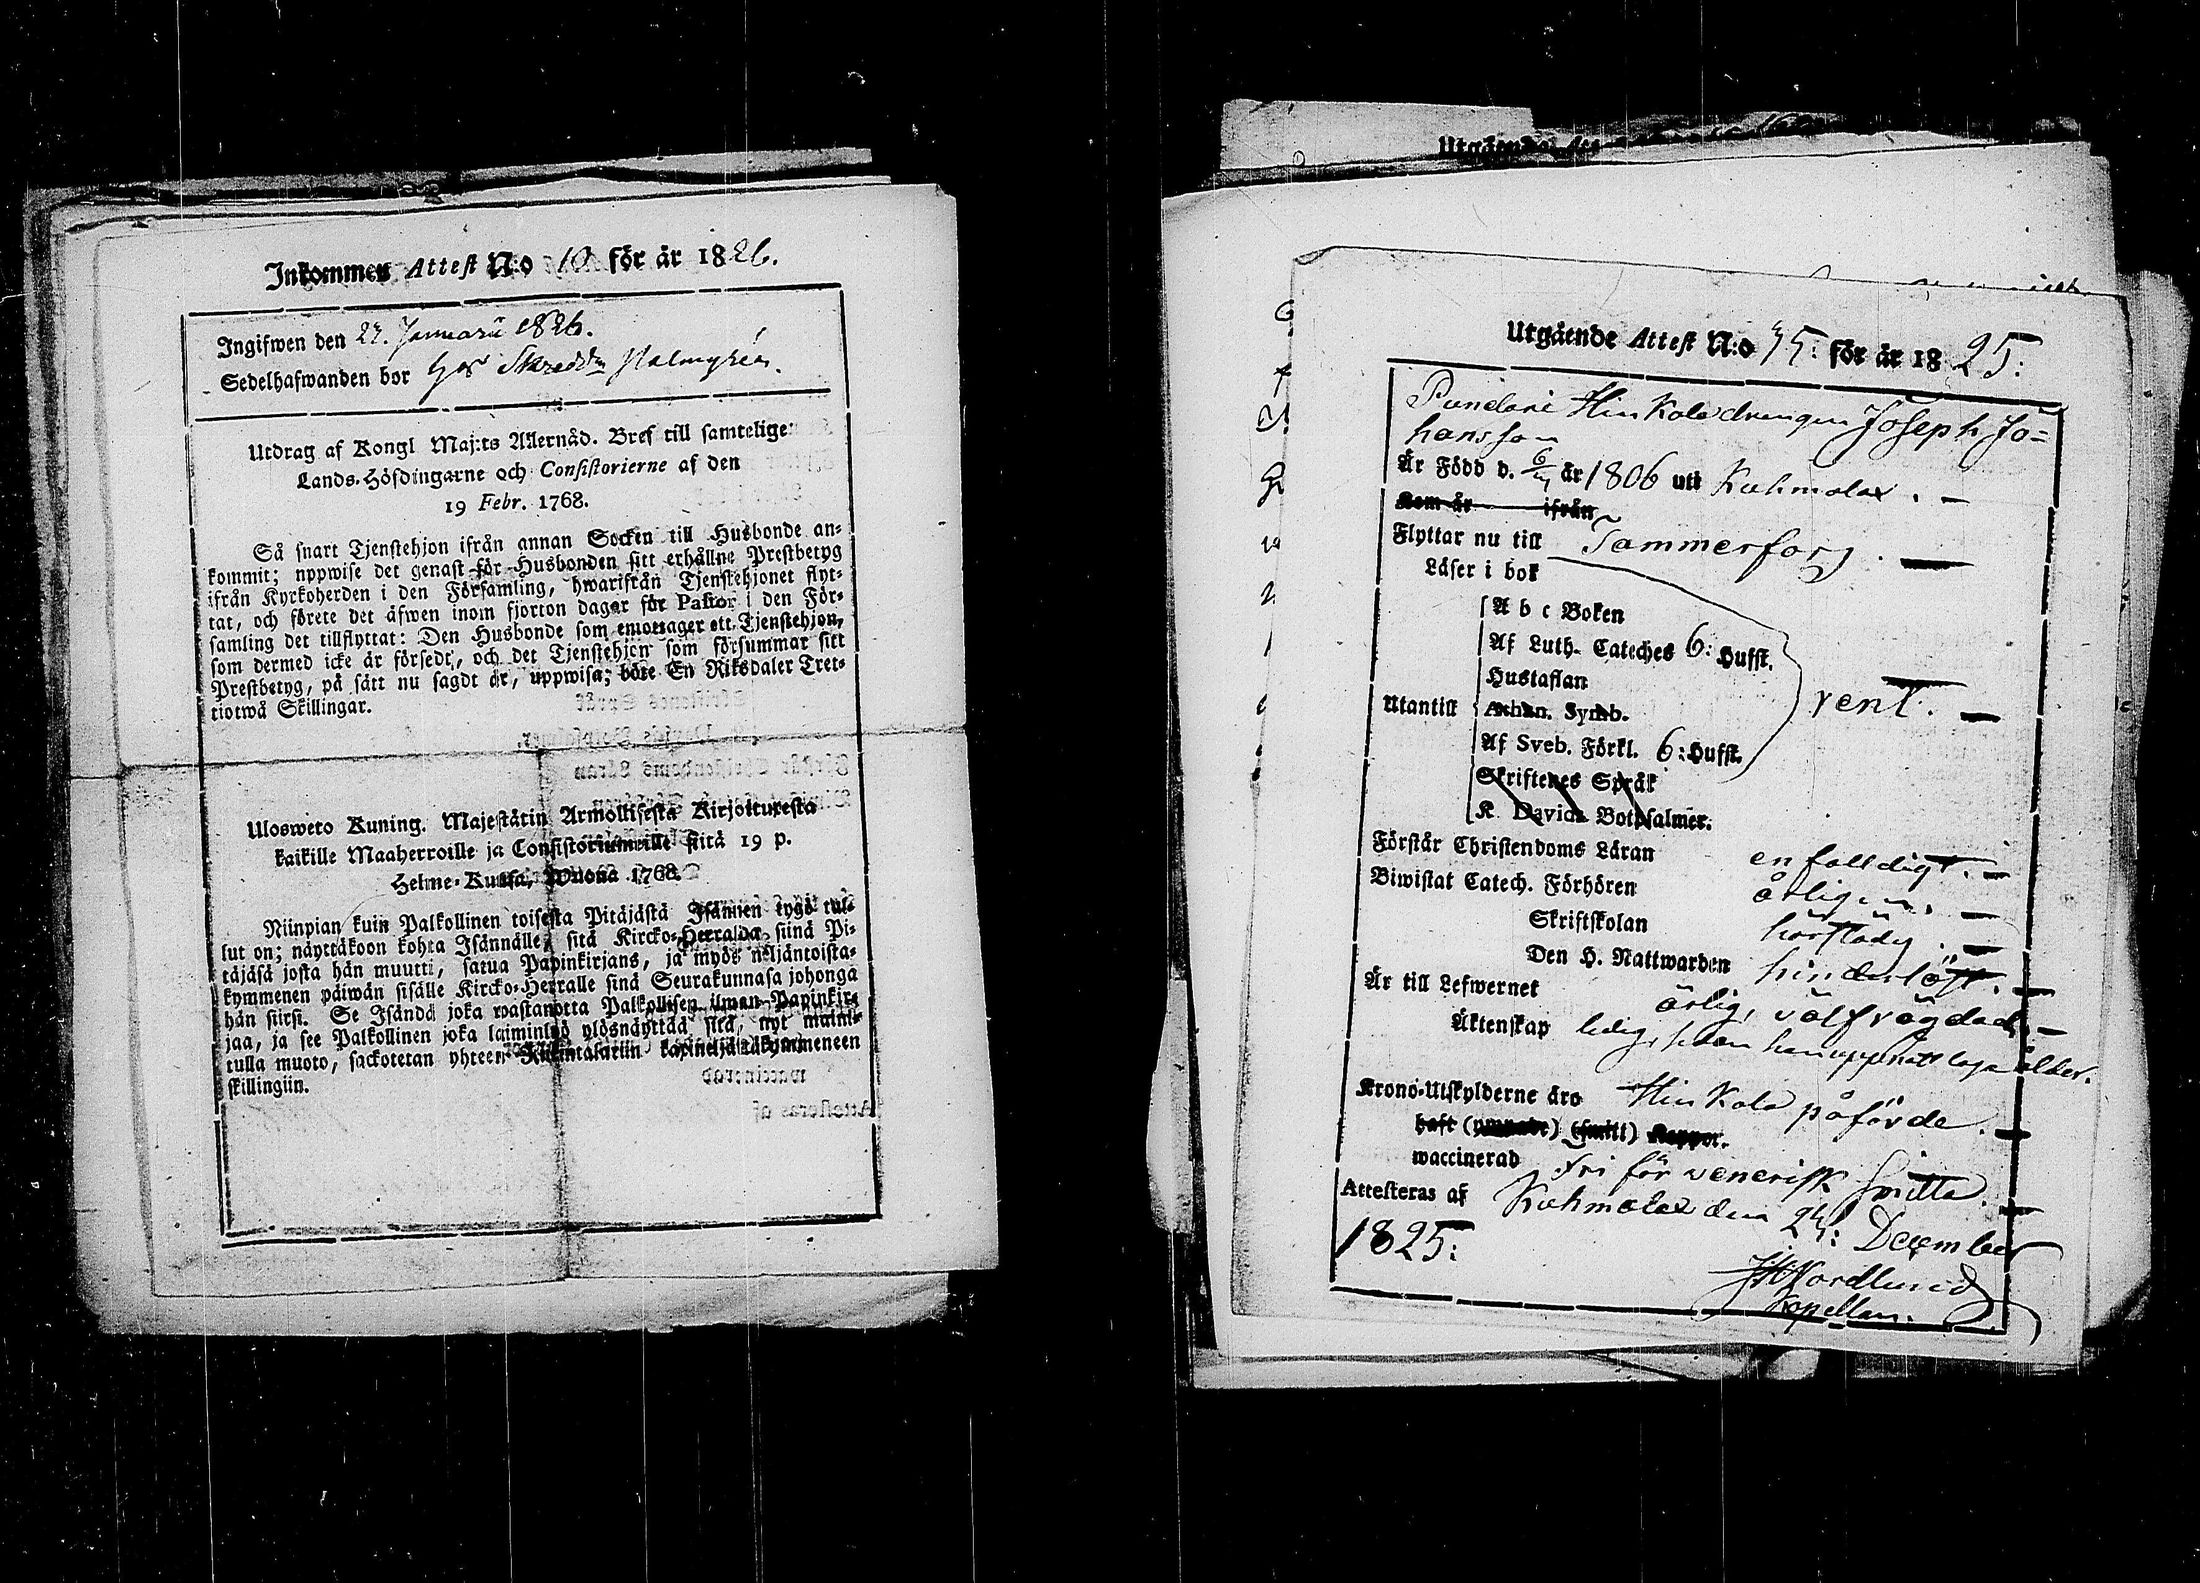 Inkommen Attest N:o 10 för år 1826.
Ingifwen den 27. Januarii 1826.
Sedelhafwanden bor hos Skredd:n Malmgrén.
Utdrag af Kongl Maj:ts Allernåd. Bref till samtelige
Lands-Höfdingarne och Consistorierne af den
19 Febr. 1768.
Så snart Tjenstehjon ifrån annan Socken till Husbonde an-
kommit; uppwise det genast för Husbonden sitt erhållne Prestbetyg
ifrån Kyrkoherden i den Församling, hwarifrån Tjenstehjonet flyt-
tat, och förete det äfwen inom fjorton dagar för Pastor i den För-
samling det tillflyttat: Den Husbonde som emottager ett Tjenstehjon,
som dermed icke är försedt, och det Tjenstehjon som försummar sitt
Prestbetyg, på sätt nu sagdt är, uppwisa; böte En Riksdaler Tret-
tiotwå Skillingar.
Ulosweto Kuning. Majestätin Armollisesta Kirjoituxesta
kaikille Maaherroille ja Consistoriumeille siitä 19 p.
Helme-Kuusa, Wuona 1768.
Niinpian kuin Palkollinen toisesta Pitäjästä Isännen tygö tul-
lut on; näyttäkoon kohta Isännälle, sitä Kircko-Herralda siinä Pi-
täjäsä josta hän muutti, saatua Papinkirjans, ja myös neljäntoista-
kymmenen päiwän sisälle Kircko-Herralle siinä Seurakunnasa johonga
hän siirsi. Se Isändä joka wastanotta Palkollisen ilman Papinkir-
jaa, ja see Palkollinen joka laiminlyö ylösnäyttää sitä, nyt mainit-
tulla muoto, sackotetan yhteen Rikintalariin kaxineljättäkymmeneen
skillingiin.
Utgående Attest N:o 45: för år 1825:
Hinkala drengen Joseph Jo=
hansson
Är Född d. 6/4 år 1806 uti Kuhmalax. —
Kom år ifrån
Flyttar nu till Tammerfors. —
Läser i bok
A b c Boken
Af Luth. Cateches 6: Hufst.
Hustaflan
Utantill Athan. Symb. rent. —
Af Sveb. Förkl. 6: Hufst.
Skriftenes Språk
K. Davids Botpsalmer.
Förstår Christendoms Läran enfalldigt. —
Biwistat Catech. Förhören årligen. —
Skriftskolan
Den H. Nattwarden hinderlöst. —
Är till Lefwernet ärlig, välfrägdad. —
Äktenskap ledig, sedan han uppnått laga ålder.
Krono-Utskylderne äro Hinkala påförde. —
haft (ympade) (smitt) Koppor.
waccinerad fri för venerisk smitta. —
Attesteras af Kuhmalax den 24: December
1825:
Nordlund
Kapellan.